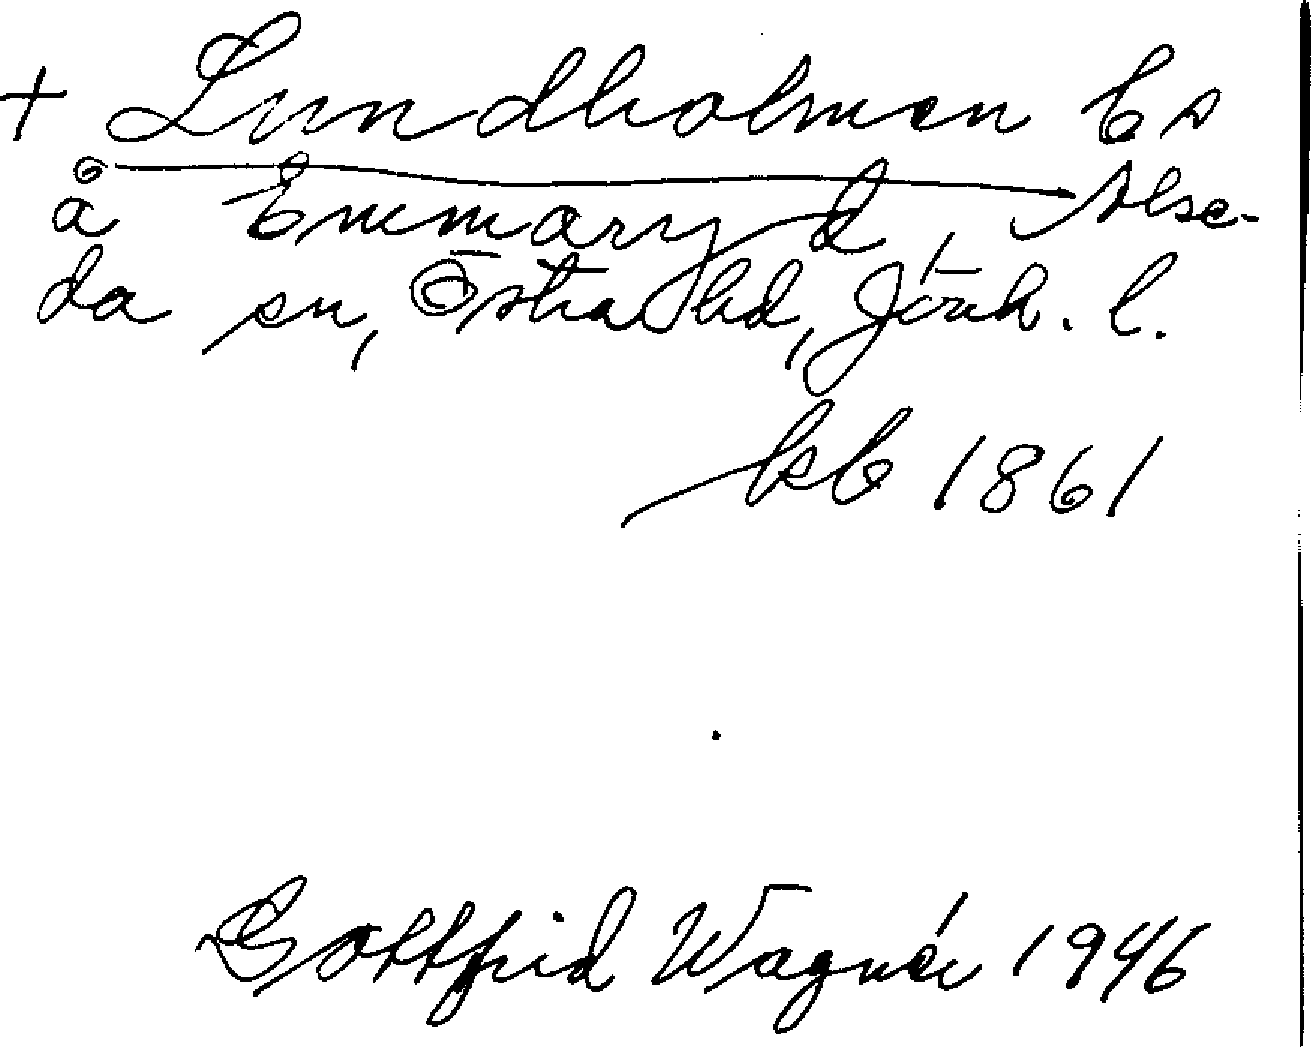 + Lundholmen bs
å Emmaryd, Alse-
da sn, Östra hd, Jönk. l.
kb 1861
Gottfrid Wagnér 1946